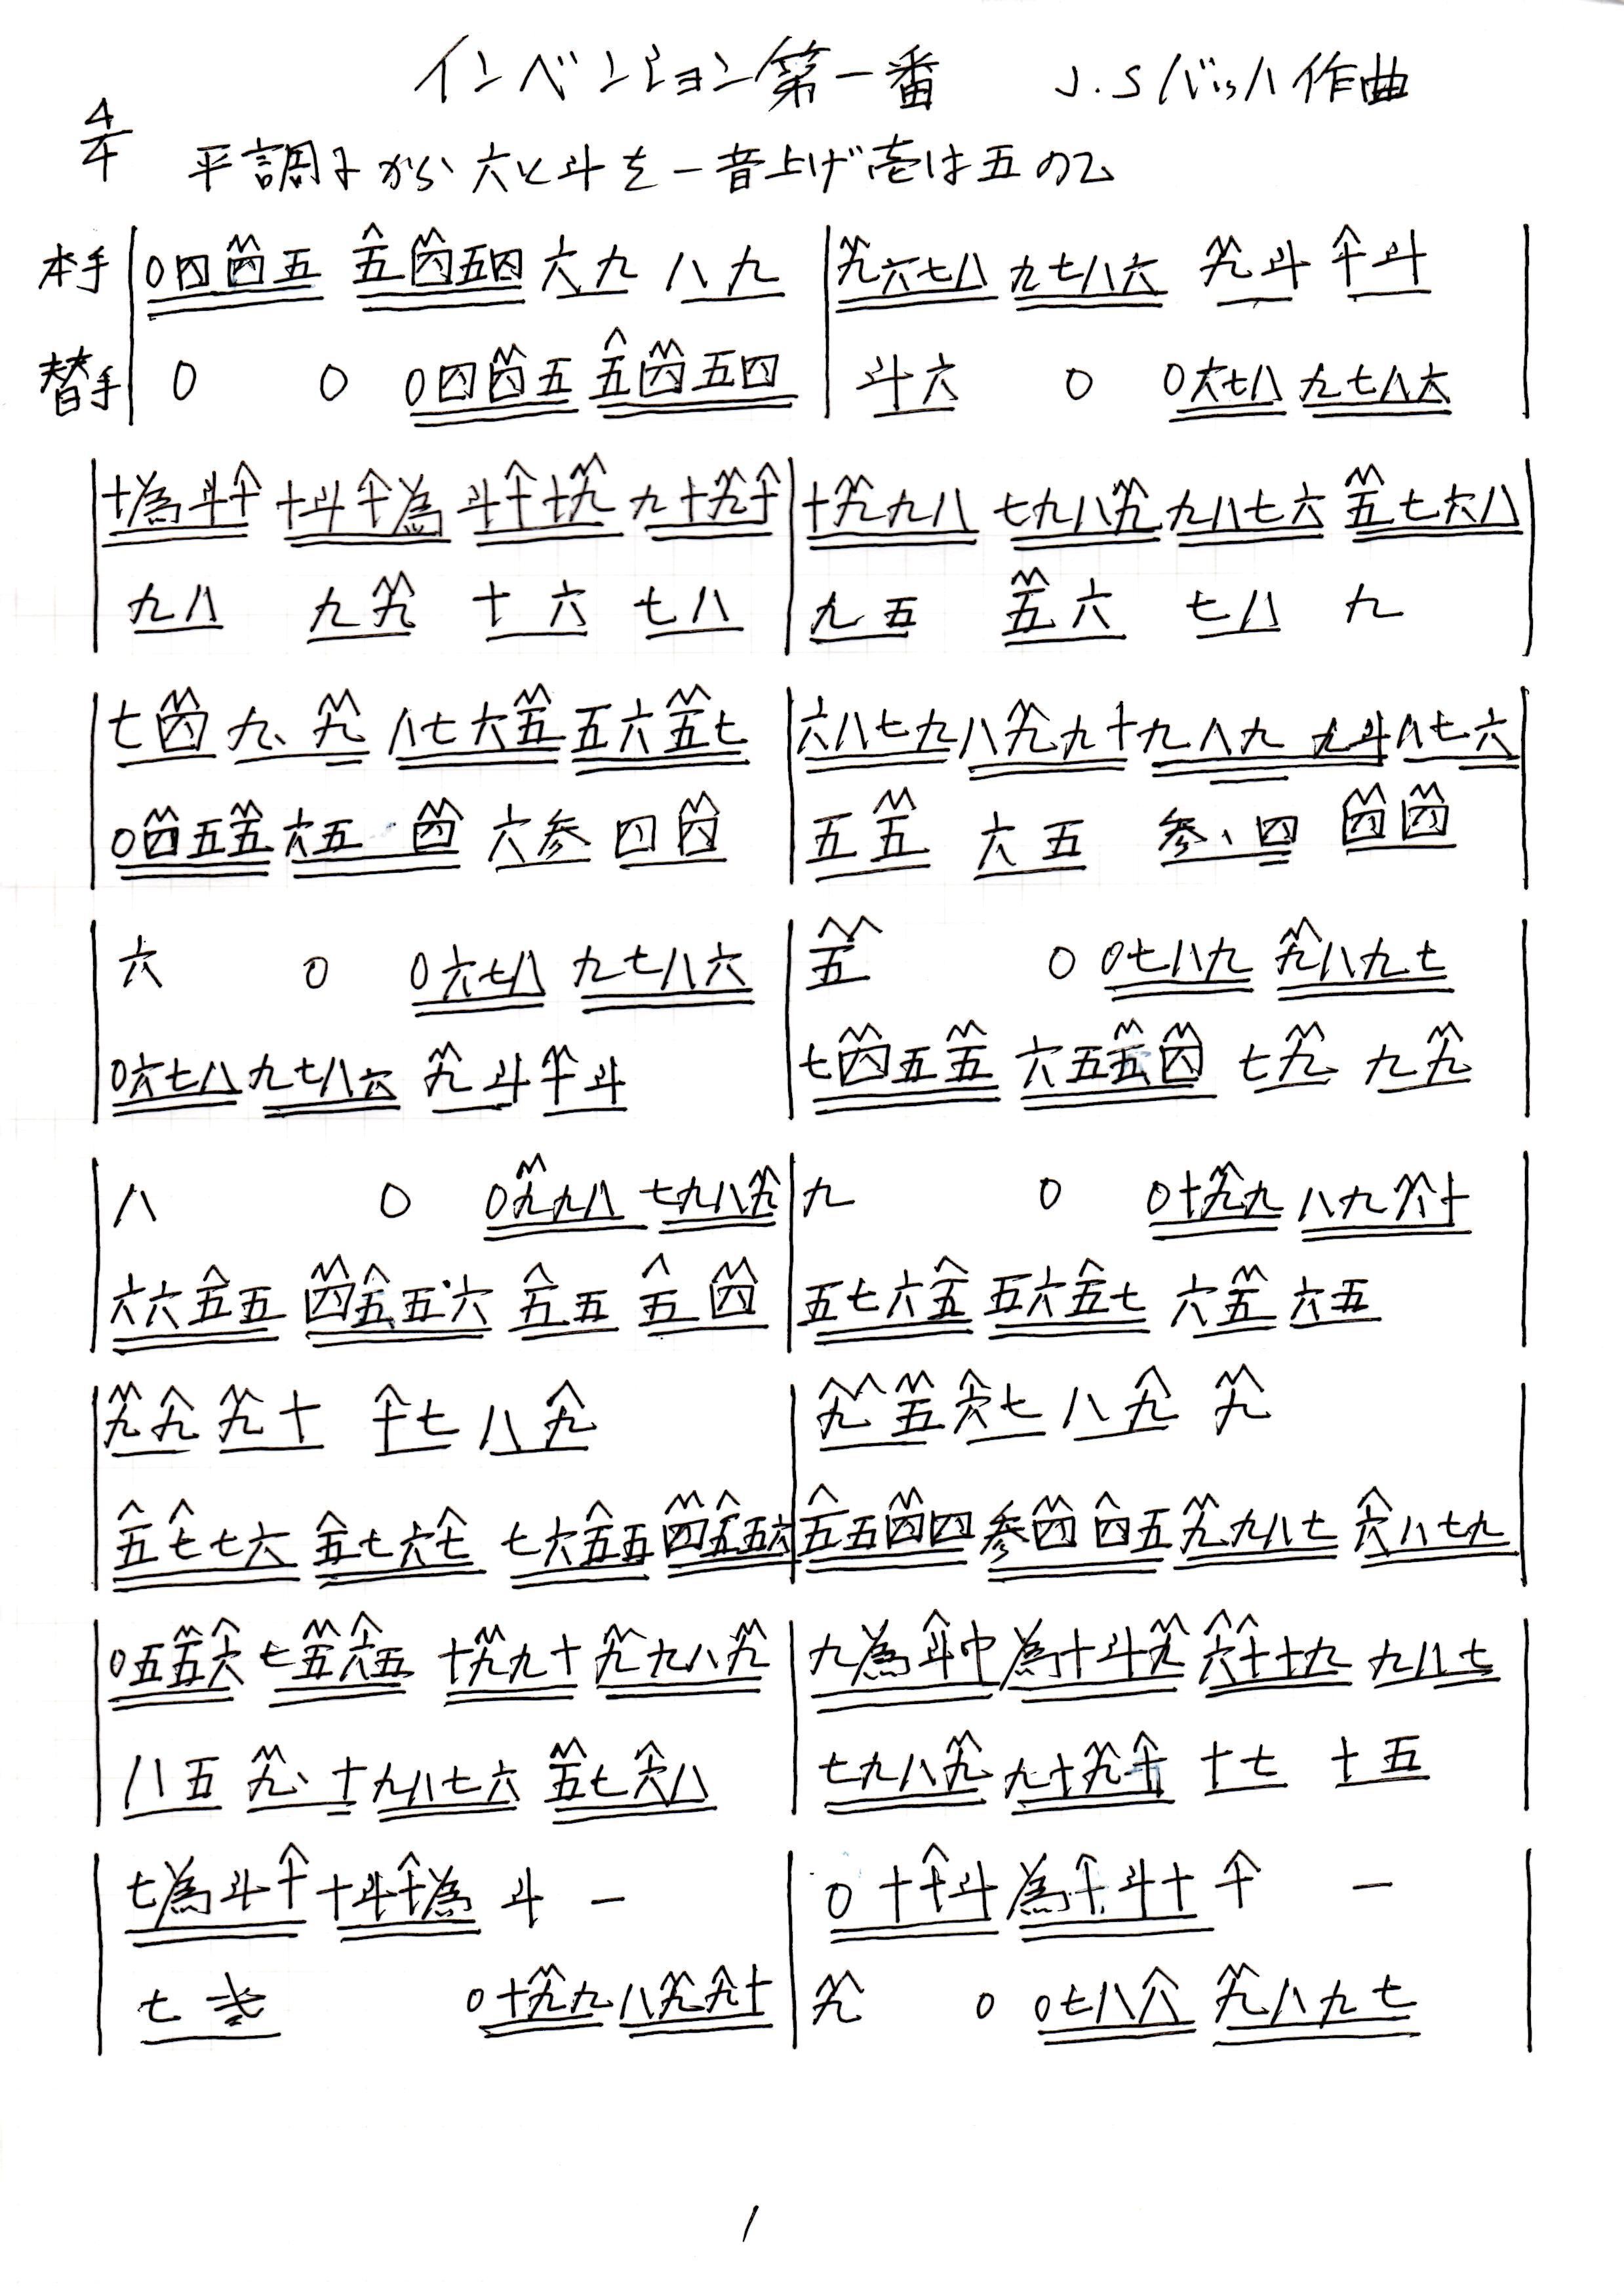 インベンション第一番 J.Sバッハ作曲
4/4 平調子から六と斗を一音上げ壱は五の乙
本手 0四四五 五四五四 六九 八九 九六七八 九七八六 九斗 十斗
替手 0 0 0四四五 五四五四 斗六 0 0六七八 九七八六
十為斗十 十斗十為 斗十十九 九十九十 十九九八 七九八九 九八七六 五七六八
九八 九九 十六 七八 九五 五六 七八 九
七四 九、九 八七六五 五六五七 六八七九 八九九十 九八九 九斗 八七六
0四五五 六五 四 六参 四四 五五 六五 参、四 四四
六 0 0六七八 九七八六 五 0 0七八九 九八九七
0六七八 九七八六 九斗 十斗 七四五五 六五五四 七九 九九
八 0 0九九八 七九八九 九 0 0十九九 八九九十
六六五五 四五五六 五五 五四 五七六五 五六五七 六五 六五
九九 九十 十七 八九 九五 六七 八九 九
五七七六 五七六七 七六五五 四五五六 五五四四 参四四五 九九八七 六八七九
0五五六 七五六五 十九九十 九九八九 九為斗巾 為十斗九 六十十九 九八七
八五 九、十 九八七六 五七六八 七九八九 九十九十 十七 十五
七為斗十 十斗十為 斗 ー 0十十斗 為十斗十 十 ー
七 0十九九 八九九十 九 0 0七八八 九八九七
1